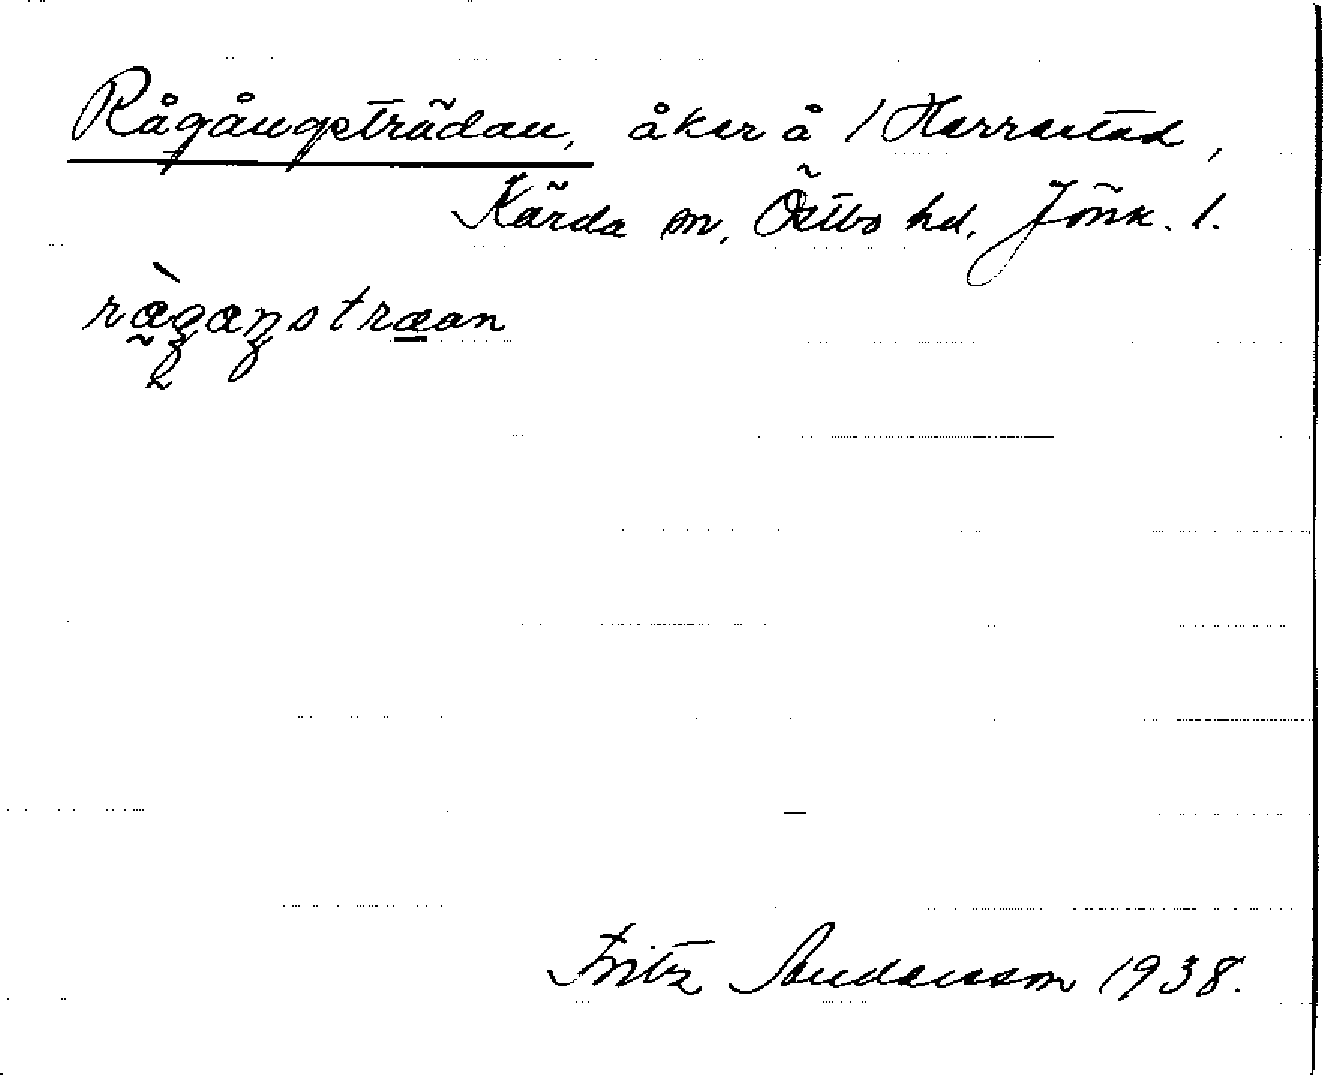 Rågångsträdan, åker å 1 Harrastad,
Kärda sn, Östbo hd, Jönk. l.
Fritz Andersson 1938.